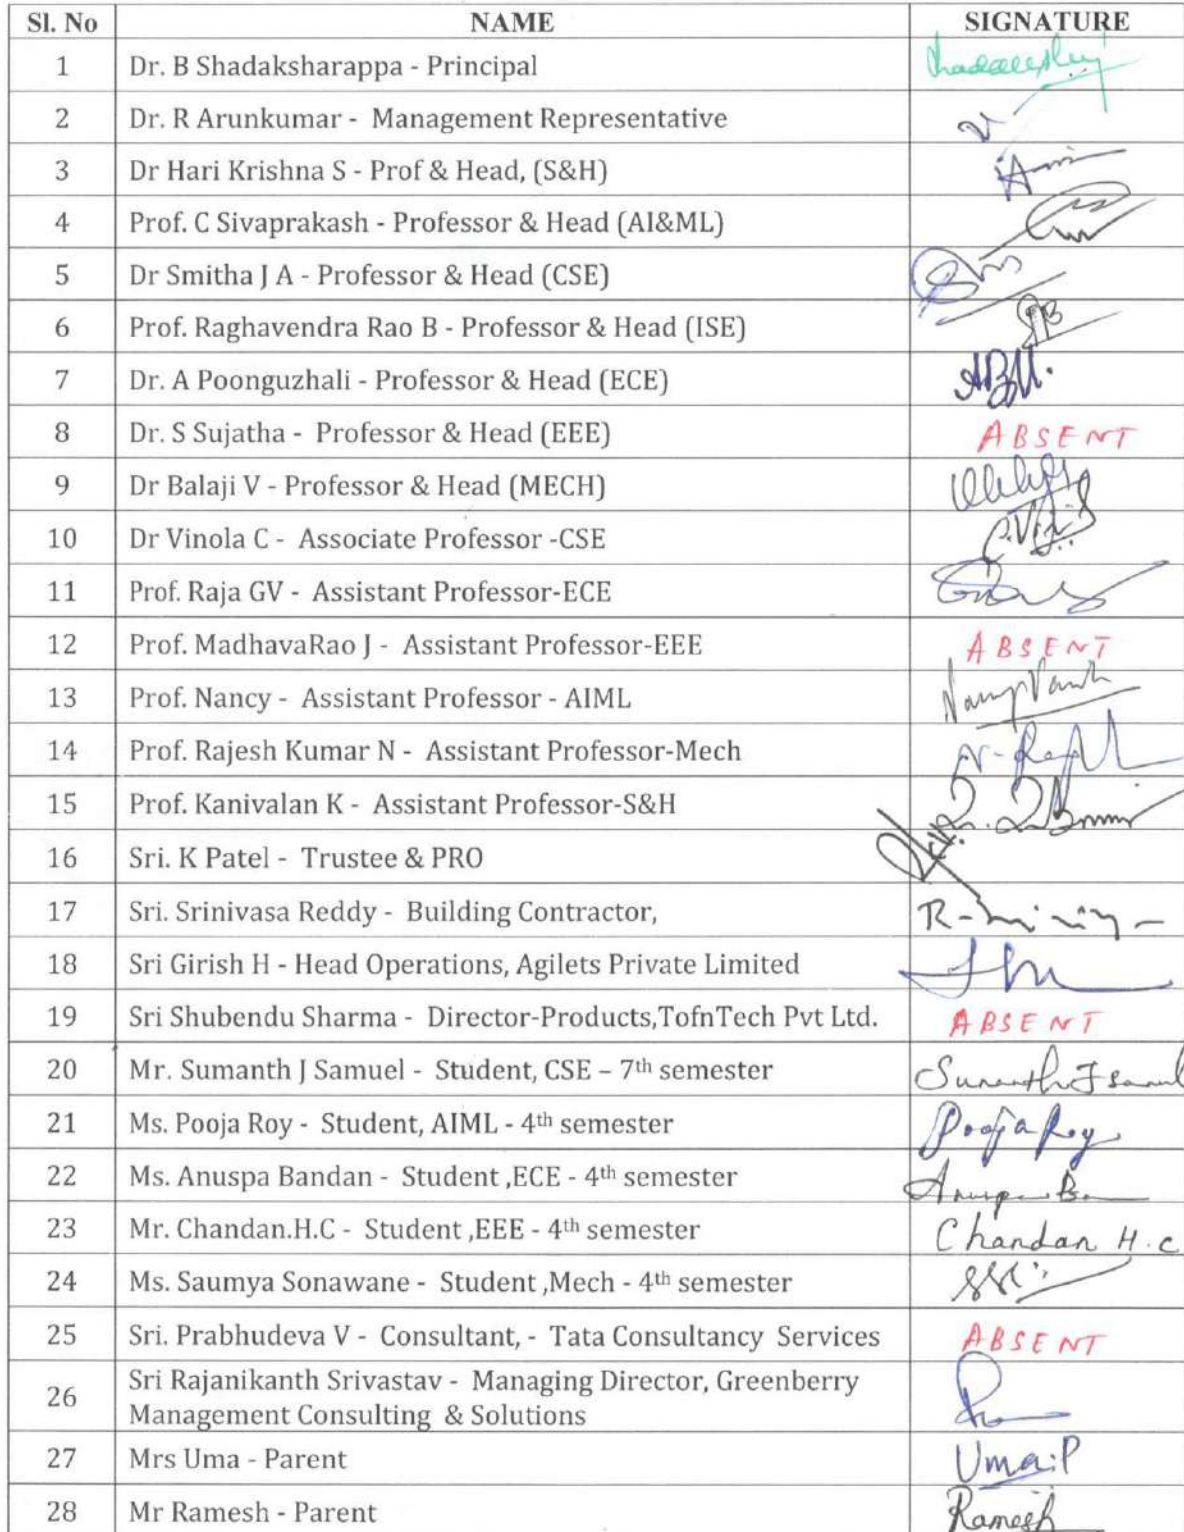 Sl. No NAME SIGNATURE
1 Dr. B Shadaksharappa - Principal
2 Dr. R Arunkumar - Management Representative
3 Dr Hari Krishna S - Prof & Head, (S&H)
4 Prof. C Sivaprakash - Professor & Head (AI&ML)
5 Dr Smitha J A - Professor & Head (CSE)
6 Prof. Raghavendra Rao B - Professor & Head (ISE)
7 Dr. A Poonguzhali - Professor & Head (ECE)
8 Dr. S Sujatha - Professor & Head (EEE) ABSENT
9 Dr Balaji V - Professor & Head (MECH)
10 Dr Vinola C - Associate Professor -CSE
11 Prof. Raja GV - Assistant Professor-ECE
12 Prof. MadhavaRao J - Assistant Professor-EEE ABSENT
13 Prof. Nancy - Assistant Professor - AIML
14 Prof. Rajesh Kumar N - Assistant Professor-Mech
15 Prof. Kanivalan K - Assistant Professor-S&H
16 Sri. K Patel - Trustee & PRO
17 Sri. Srinivasa Reddy - Building Contractor,
18 Sri Girish H - Head Operations, Agilets Private Limited
19 Sri Shubendu Sharma - Director-Products,TofnTech Pvt Ltd. ABSENT
20 Mr. Sumanth J Samuel - Student, CSE – 7th semester Sumanth J Samuel
21 Ms. Pooja Roy - Student, AIML - 4th semester Pooja Roy
22 Ms. Anuspa Bandan - Student ,ECE - 4th semester
23 Mr. Chandan.H.C - Student ,EEE - 4th semester Chandan H.C
24 Ms. Saumya Sonawane - Student ,Mech - 4th semester
25 Sri. Prabhudeva V - Consultant, - Tata Consultancy Services ABSENT
26 Sri Rajanikanth Srivastav - Managing Director, Greenberry
Management Consulting & Solutions
27 Mrs Uma - Parent Uma.P
28 Mr Ramesh - Parent Ramesh